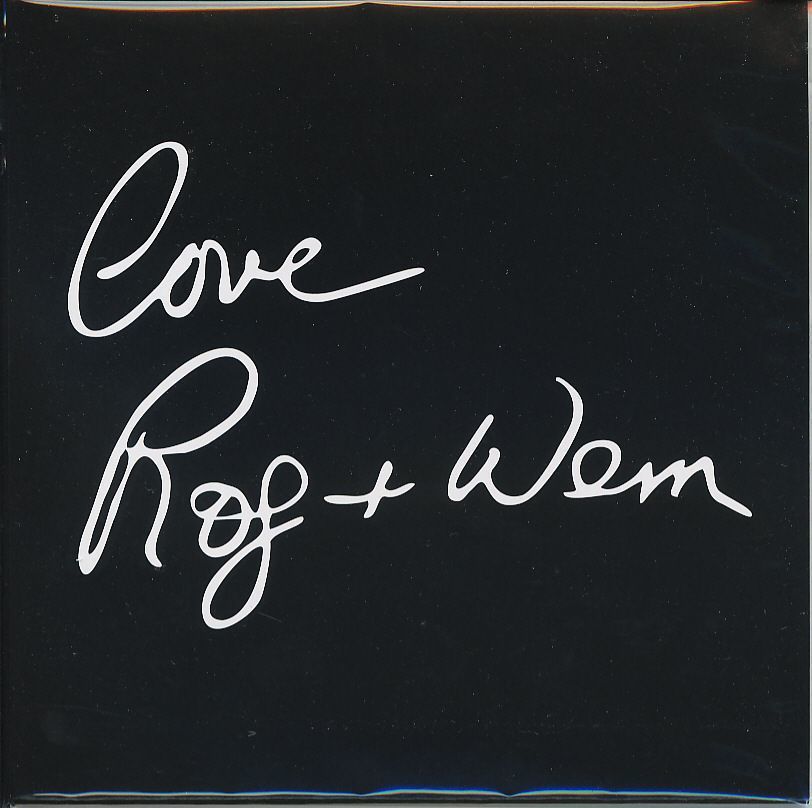 Love
Rog + Wem